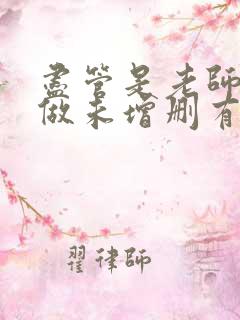 盡管是老師
做未增刪有
翟律師